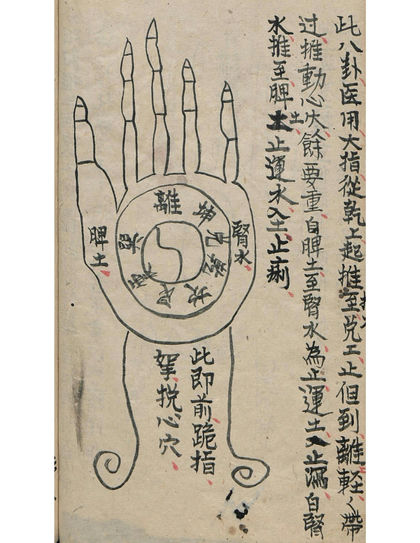 此八卦医用大指從乾上起推至兑上止但到離軽々帶
过推動心火餘要重自脾土至腎水為止運土入止瀉自腎
水推至脾土止運水入土止痢
土
離
坤
兑
乾
坎
艮
震
巽
腎水
脾土
此即前跪指
掌挩心穴